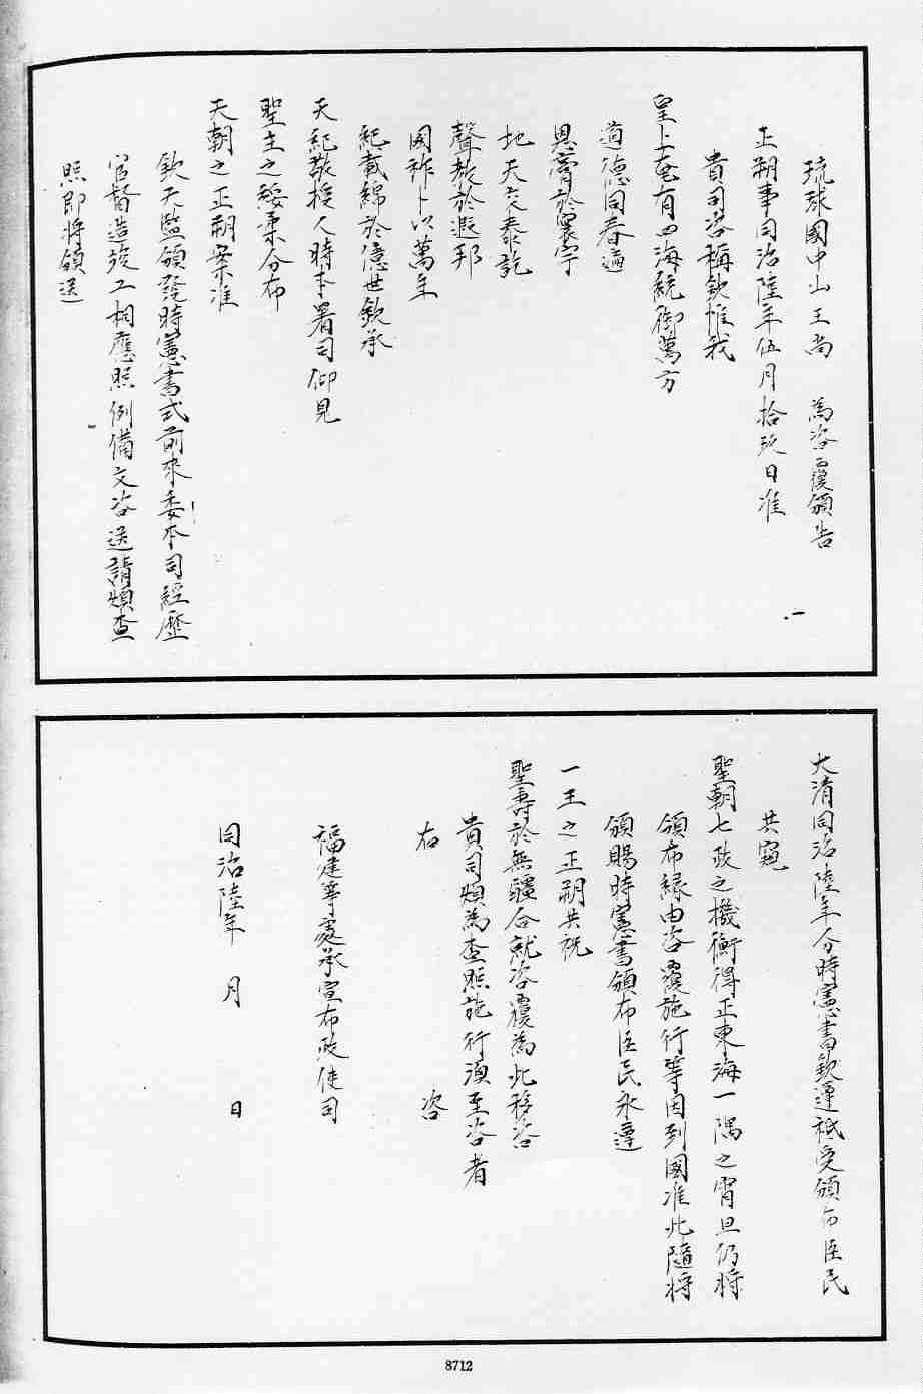 琉球國中山王尚　為咨覆頒告
正朔事同治陸年伍月拾玖日准
貴司咨稱欽惟我
皇上奄有四海統御萬方
道德同春遍
恩膏於寰宇
地天交泰訖
聲教於遐邦
國祚卜以萬年
紀載綿於億世欽承
天紀敬授人時本署司仰見
聖主之綏柔分布
天朝之正朔案准
欽天監頒發時憲書式前來委本司經歷
官督造竣工相應照例備文咨送請煩查
照即將頒送
大清同治陸年分時憲書欽遵祗受頒布臣民
共窺
聖朝七政之機衡得正東海一隅之宵旦仍將
頒布緣由咨覆施行等因到國准此隨將
頒賜時憲書頒布臣民永遵
一王之正朔共祝
聖壽於無疆合就咨覆為此移咨
貴司煩為查照施行須至咨者
右　咨
福建等處承宣布政使司
同治陸年　月　日
8712